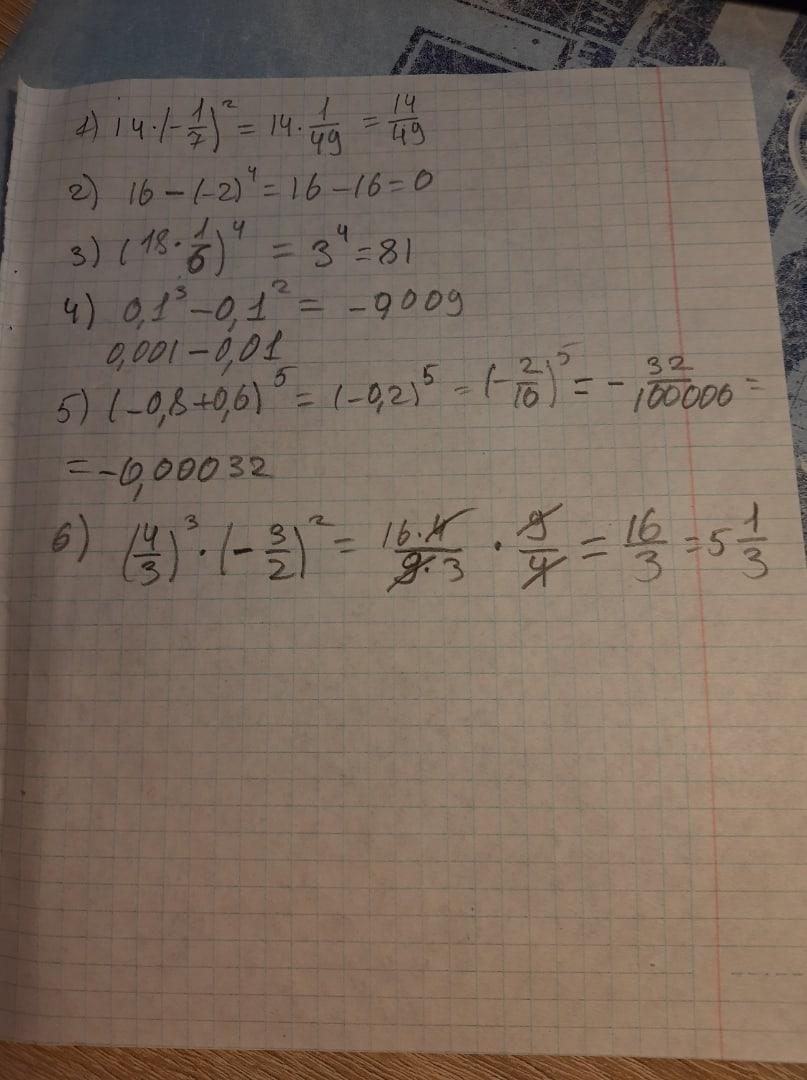 1) 14·(-1/7)² = 14·1/49 = 14/49
2) 16 - (-2)⁴ = 16 - 16 = 0
3) (18·1/6)⁴ = 3⁴ = 81
4) 0,1³ - 0,1² = -0,009
0,001 - 0,01
5) (-0,8+0,6)⁵ = (-0,2)⁵ = (-2/10)⁵ = -32/100000 =
= -0,00032
6) (4/3)³·(-3/2)² = 16·4/9·3 · 9/4 = 16/3 = 5 1/3